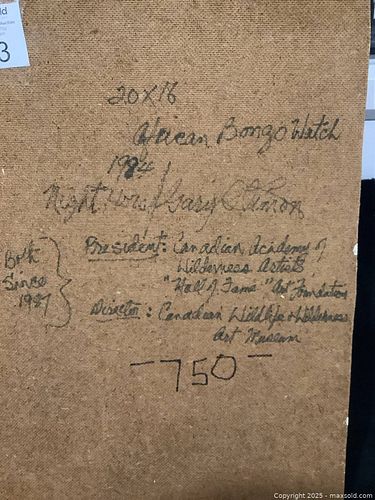 ld
3
20x16
African Bongo Watch
1994
Night Gary
President: Canadian Academy of
Wilderness Artists
"Hall of Fame" Art Foundation
Both
Since
1987
Director: Canadian Wildlife & Wilderness
Art Museum
-750-
Copyright 2025 - maxsold.com